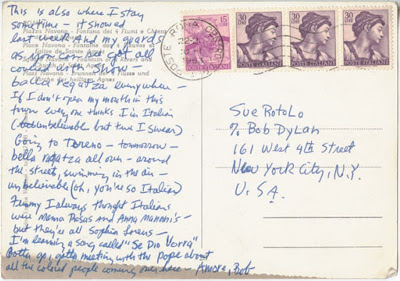 This is also where I stay
sometime - it showed
last week And my guards
as you can see got all
covered with snow
bella ragatza everywhere
If I don't open my mouth in this
town everyone thinks I'm Italian
(unbelievable but true I swear)
Going to Toreno - tomorrow -
bella ragatza all over - around
the streets, swimming in the air -
unbelievable (oh, you're so Italian)
Funny I always thought Italians
were Mama Rosas and Anna Manani's -
but they're all Sophia Lorens -
I'm learning a song called "Se Dio Vorra"
Gotta go, gotta meeting with the Pope about
all the colored people coming over here - Amore, Bob
Piazza Navona - Fontana dei 4 Fiumi e Chiesa
Place Navona - Fontaine des 4 fleuves et
POSTE
ROMA
15
POSTE ITALIANE
30
POSTE ITALIANE
30
POSTE ITALIANE
30
POSTE ITALIANE
Sue Rotolo
% Bob Dylan
161 West 4th Street
New York City, N.Y.
U.S.A.